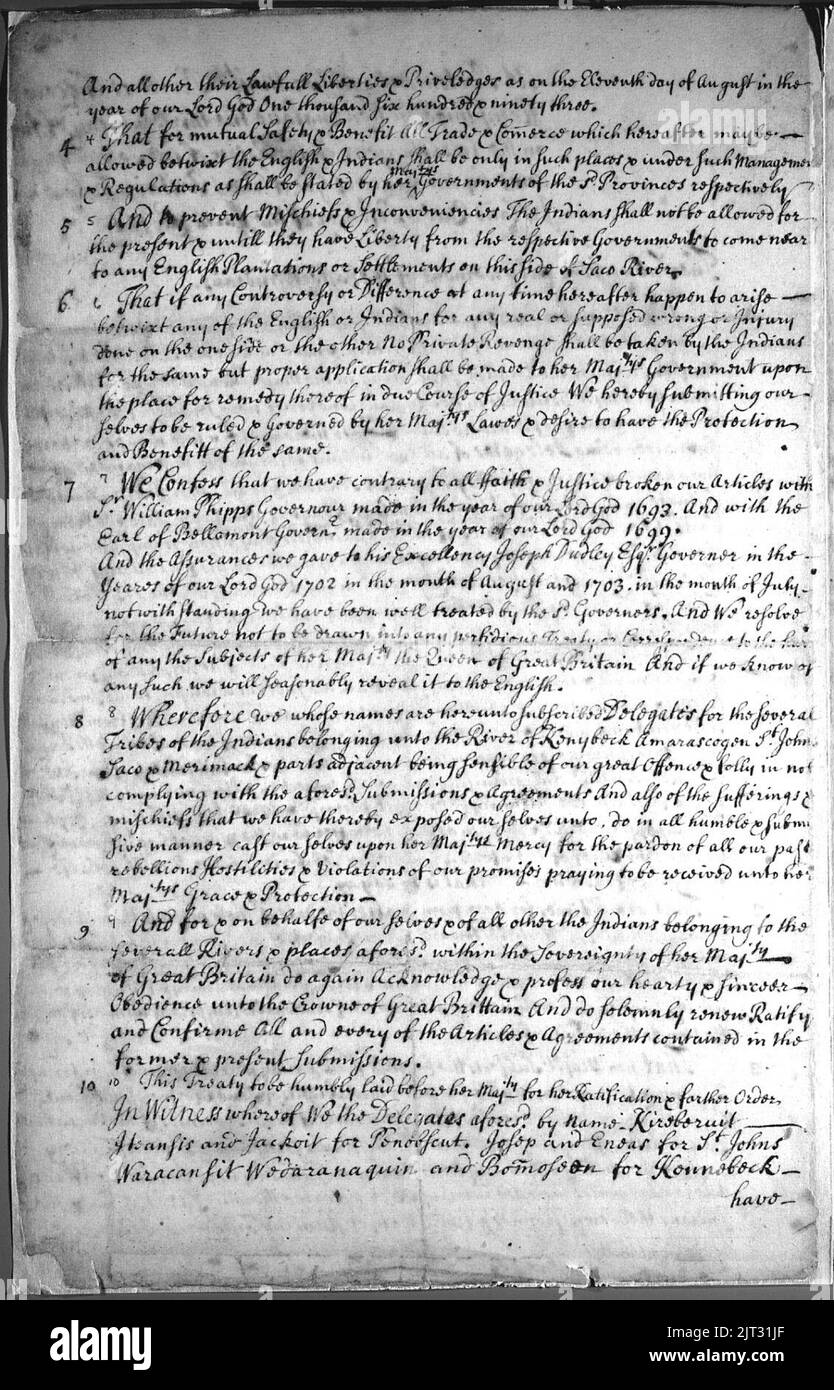 And all other their Lawfull Liberties & Priveledges as on the Eleventh day of August in the
year of our Lord God One thousand six hundred & ninety three.
4 4 That for mutual Safety & Benefit All Trade & Comerce which hereafter may be
allowed betwixt the English & Indians shall be only in such places & under such Managemen
& Regulations as shall be stated by her Maj:tys Governments of the sd. Provinces respectively
5 5 And to prevent Mischiefs & Inconveniencies The Indians shall not be allowed for
the present & untill they have Liberty from the respective Governments to come near
to any English Plantations or Settlements on this side of Saco River.
6 6 That if any Controversy or Difference at any time hereafter happen to arise
betwixt any of the English or Indians for any real or supposed wrong or Injury
done on the one side or the other No Private Revenge shall be taken by the Indians
for the same but proper application shall be made to her Maj:tys Government upon
the place for remedy thereof in due Course of Justice We hereby submitting our
selves to be ruled & Governed by her Maj:tys Lawes & desire to have the Protection
and Benefitt of the same.
7 7 We Confess that we have contrary to all ffaith & Justice broken our Articles with
Sr. William Phipps Governour made in the year of our Lord God 1693. And with the
Earl of Bellomont Governr. made in the year of our Lord God 1699.
And the Assurances we gave to his Excellency Joseph Dudley Esqr. Governer in the
Yeares of our Lord God 1702 in the month of August and 1703. in the month of July
notwithstanding we have been well treated by the sd. Governers. And We resolve
for the Future not to be drawn into any perfidious Treaty or Correspondence to the hurt
of any the Subjects of her Maj:ty the Queen of Great Britain And if we know of
any such we will seasonably reveal it to the English.
8 8 Wherefore we whose names are hereunto subscribed Delegates for the several
Tribes of the Indians belonging unto the River of Kenybeck Amarascogen St. Johns
Saco & Merimack & parts adjacent being sensible of our great Offence & folly in not
complying with the aforesd. Submissions & Agreements And also of the sufferings &
mischiefs that we have thereby exposed our selves unto, do in all humble & submis
sive manner cast our selves upon her Maj:tys Mercy for the pardon of all our past
rebellions Hostilities & Violations of our promises praying to be received unto her
Maj:tys Grace & Protection
9 9 And for & on behalfe of our selves & of all other the Indians belonging to the
severall Rivers & places aforesd. within the Sovereignty of her Maj:ty
of Great Britain do again Acknowledge & profess our hearty & sinceer
Obedience unto the Crowne of Great Brittain And do solemnly renew Ratify
and Confirme All and every of the Articles & Agreements contained in the
former & present Submissions.
10 10 This Treaty to be humbly laid before her Maj:ty for her Ratification & farther Order
In Witness whereof We the Delegates aforesd. by name Kireberuit
Iteansis and Jackoit for Penobscut. Josep and Eneas for St. Johns
Waracansit Wedaranaquin and Bomoseen for Kennebeck
have
alamy
Image ID: 2JT31JF
www.alamy.com